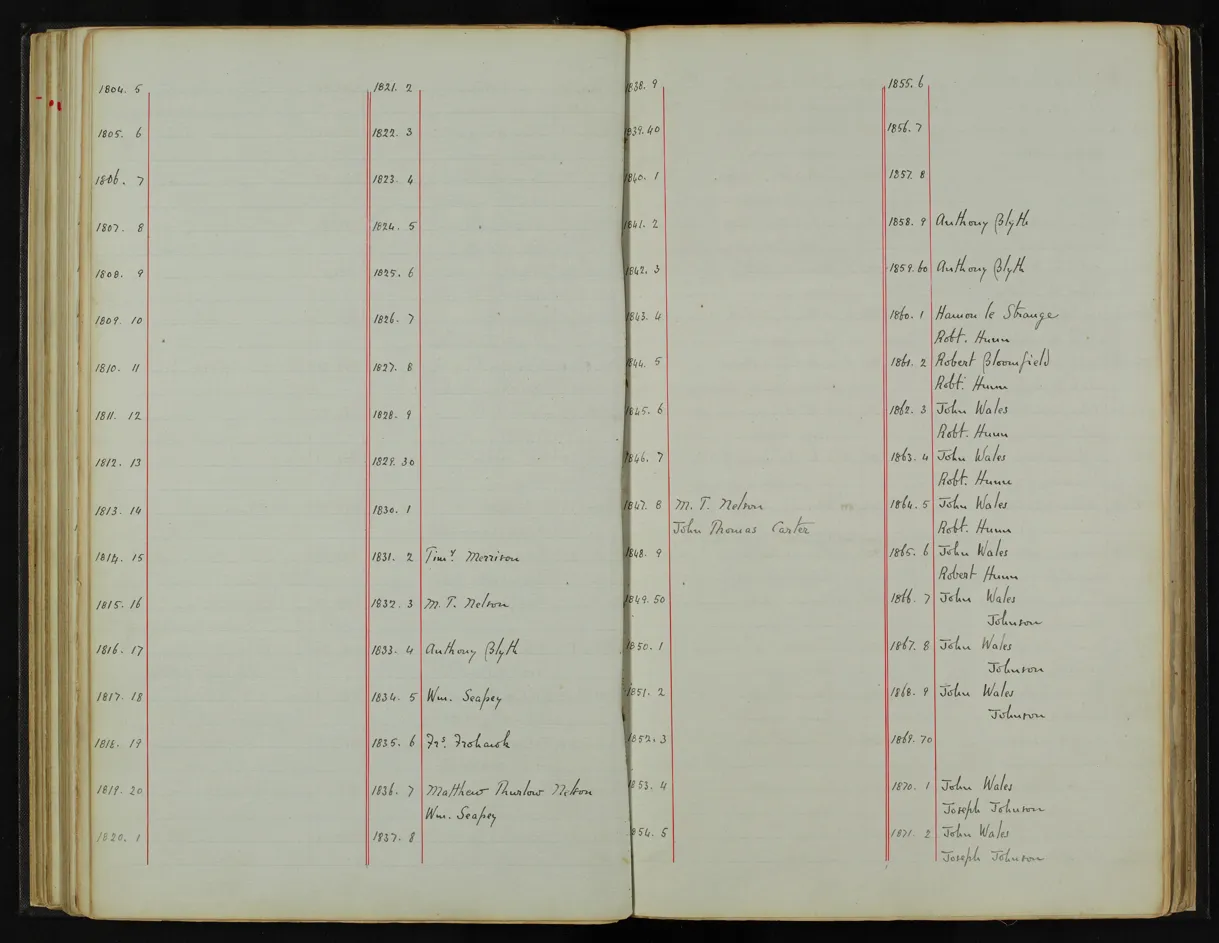 1804. 5
1805. 6
1806. 7
1807. 8
1808. 9
1809. 10
1810. 11
1811. 12
1812. 13
1813. 14
1814. 15
1815. 16
1816. 17
1817. 18
1818. 19
1819. 20
1820. 1
1821. 2
1822. 3
1823. 4
1824. 5
1825. 6
1826. 7
1827. 8
1828. 9
1829. 30
1830. 1
1831. 2 Timy. Morrison
1832. 3 M. T. Nelson
1833. 4 Anthony Blyth
1834. 5 Wm. Seapey
1835. 6 Frs. Frohawk
1836. 7 Matthew Thurlow Nelson
Wm. Seapey
1837. 8
1838. 9
1839. 40
1840. 1
1841. 2
1842. 3
1843. 4
1844. 5
1845. 6
1846. 7
1847. 8 M. T. Nelson
John Thomas Carter
1848. 9
1849. 50
1850. 1
1851. 2
1852. 3
1853. 4
1854. 5
1855. 6
1856. 7
1857. 8
1858. 9 Anthony Blyth
1859. 60 Anthony Blyth
1860. 1 Hamon le Strange
Robt. Hunn
1861. 2 Robert Bloomfield
Robt. Hunn
1862. 3 John Wales
Robt. Hunn
1863. 4 John Wales
Robt. Hunn
1864. 5 John Wales
Robt. Hunn
1865. 6 John Wales
Robert Hunn
1866. 7 John Wales
Johnson
1867. 8 John Wales
Johnson
1868. 9 John Wales
Johnson
1869. 70
1870. 1 John Wales
Joseph Johnson
1871. 2 John Wales
Joseph Johnson